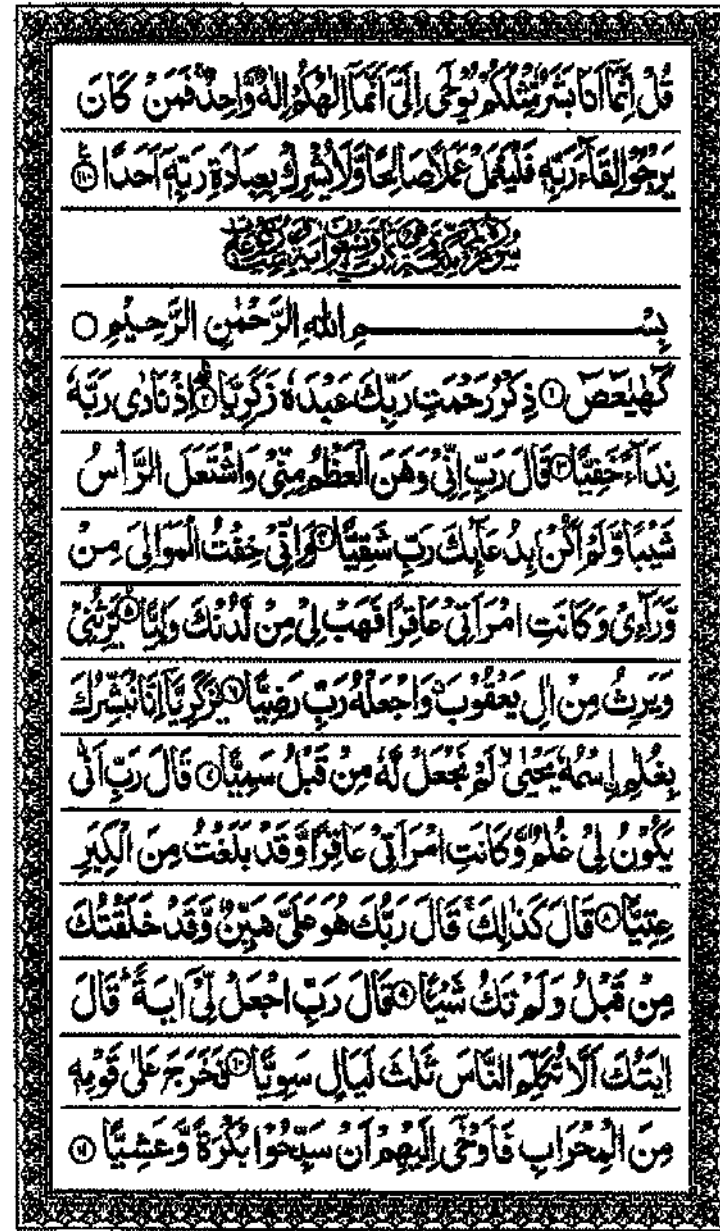 قُلْ اِنَّمَاۤ اَنَا بَشَرٌ مِّثْلُكُمْ یُوْحٰۤی اِلَیَّ اَنَّمَاۤ اِلٰهُكُمْ اِلٰهٌ وَّاحِدٌ ۚ فَمَنْ كَانَ
یَرْجُوْا لِقَآءَ رَبِّهٖ فَلْیَعْمَلْ عَمَلًا صَالِحًا وَّلَا یُشْرِكْ بِعِبَادَةِ رَبِّهٖۤ اَحَدًا ۝۱۱۰
بِسْمِ اللّٰهِ الرَّحْمٰنِ الرَّحِیْمِ ۝
كٓهٰیٰعٓصٓ ۝۱ ذِكْرُ رَحْمَتِ رَبِّكَ عَبْدَهٗ زَكَرِیَّا ۝۲ اِذْ نَادٰی رَبَّهٗ
نِدَآءً خَفِیًّا ۝۳ قَالَ رَبِّ اِنِّیْ وَهَنَ الْعَظْمُ مِنِّیْ وَاشْتَعَلَ الرَّاْسُ
شَیْبًا وَّلَمْ اَكُنْۢ بِدُعَآىِٕكَ رَبِّ شَقِیًّا ۝۴ وَاِنِّیْ خِفْتُ الْمَوَالِیَ مِنْ
وَّرَآءِیْ وَكَانَتِ امْرَاَتِیْ عَاقِرًا فَهَبْ لِیْ مِنْ لَّدُنْكَ وَلِیًّا ۝۵ یَّرِثُنِیْ
وَیَرِثُ مِنْ اٰلِ یَعْقُوْبَ ۖ وَاجْعَلْهُ رَبِّ رَضِیًّا ۝۶ یٰزَكَرِیَّاۤ اِنَّا نُبَشِّرُكَ
بِغُلٰمِ ِ۟اسْمُهٗ یَحْیٰی ۙ لَمْ نَجْعَلْ لَّهٗ مِنْ قَبْلُ سَمِیًّا ۝۷ قَالَ رَبِّ اَنّٰی
یَكُوْنُ لِیْ غُلٰمٌ وَّكَانَتِ امْرَاَتِیْ عَاقِرًا وَّقَدْ بَلَغْتُ مِنَ الْكِبَرِ
عِتِیًّا ۝۸ قَالَ كَذٰلِكَ ۚ قَالَ رَبُّكَ هُوَ عَلَیَّ هَیِّنٌ وَّقَدْ خَلَقْتُكَ
مِنْ قَبْلُ وَلَمْ تَكُ شَیْـًٔا ۝۹ قَالَ رَبِّ اجْعَلْ لِّیْۤ اٰیَةً ؕ قَالَ
اٰیَتُكَ اَلَّا تُكَلِّمَ النَّاسَ ثَلٰثَ لَیَالٍ سَوِیًّا ۝۱۰ فَخَرَجَ عَلٰی قَوْمِهٖ
مِنَ الْمِحْرَابِ فَاَوْحٰۤی اِلَیْهِمْ اَنْ سَبِّحُوْا بُكْرَةً وَّعَشِیًّا ۝۱۱